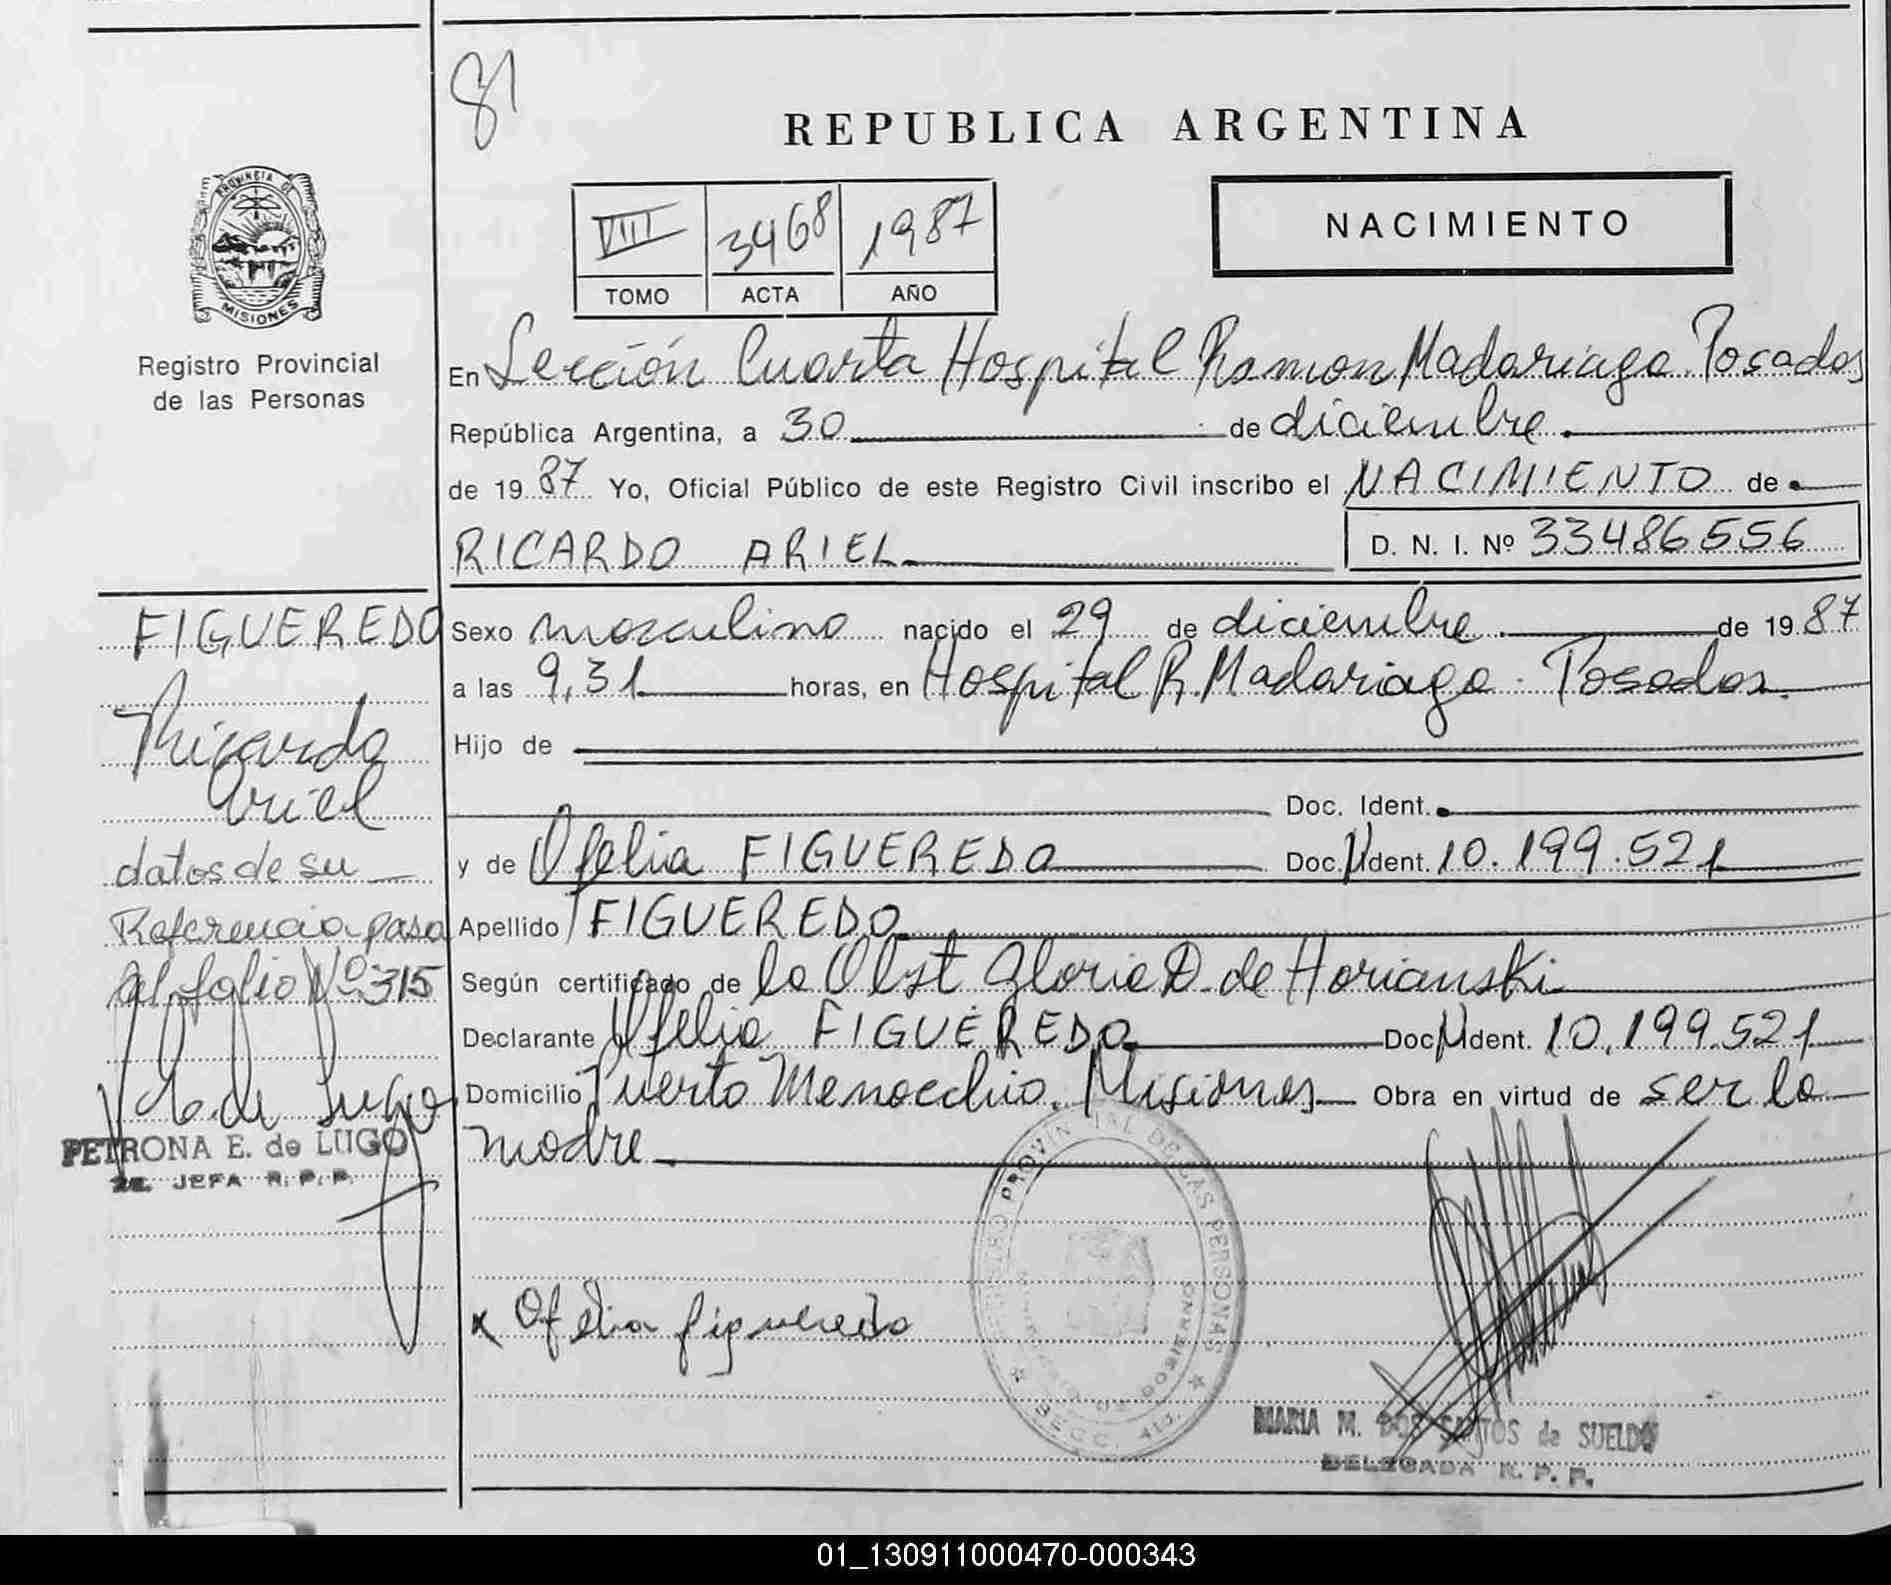 81
REPUBLICA ARGENTINA
PROVINCIA DE
MISIONES
VIII 3468 1987
TOMO ACTA AÑO
NACIMIENTO
Registro Provincial
de las Personas
En Sección Cuarta Hospital Ramon Madariaga. Posadas
República Argentina, a 30 de diciembre.
de 1987 Yo, Oficial Público de este Registro Civil inscribo el NACIMIENTO de
RICARDO ARIEL
D. N. I. Nº 33486556
FIGUEREDO
Ricardo
Ariel
datos de su
Referencia pasa
al folio Nº 315
PETRONA E. de LUGO
2a. JEFA R. P. P.
Sexo masculino nacido el 29 de diciembre. de 1987
a las 9,31 horas, en Hospital R. Madariaga - Posadas.
Hijo de
Doc. Ident.
y de Ofelia FIGUEREDO Doc. Ident. 10.199.521
Apellido FIGUEREDO
Según certificado de la Obst Gloria D. de Horianski
Declarante Ofelia FIGUEREDO Doc. Ident. 10.199.521
Domicilio Puerto Menocchio. Misiones Obra en virtud de ser la
madre.
REGISTRO PROVINCIAL DE LAS PERSONAS
GOBIERNO
SECC. 4ta.
x Ofelia figueredo
MARIA M. DOS SANTOS de SUELDO
DELEGADA R. P. P.
01_130911000470-000343